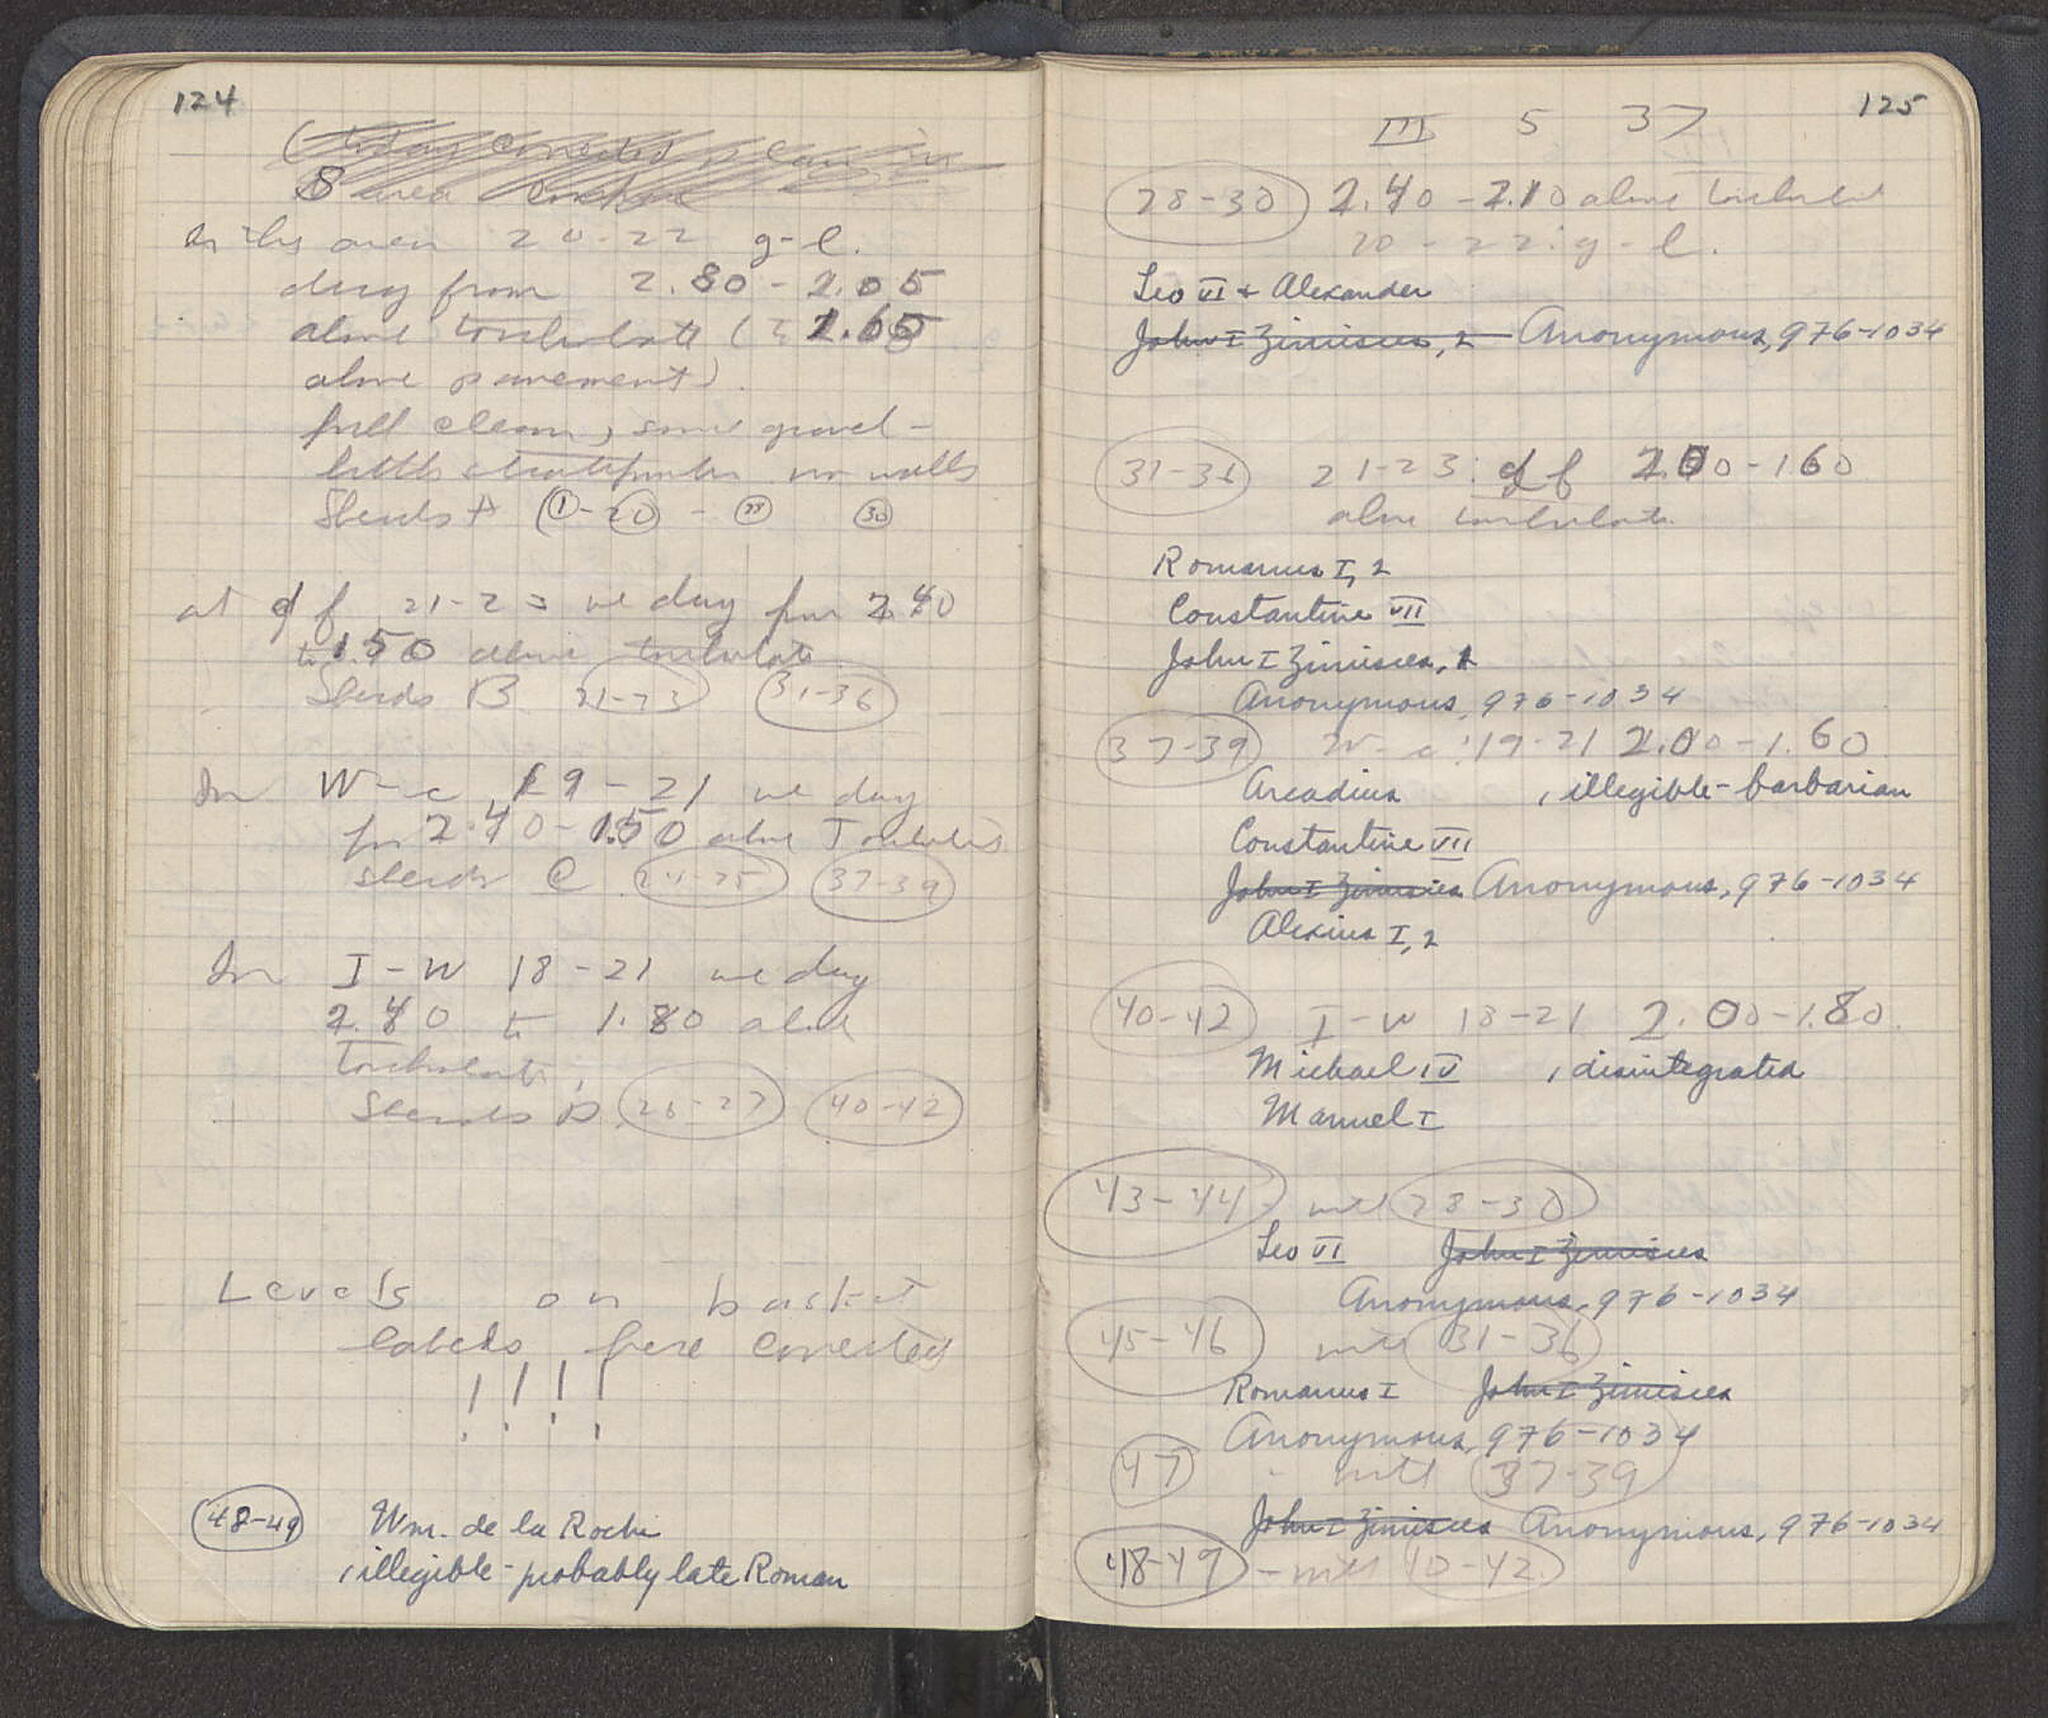 124
(today corrected plan in
S area
In this area 20-22 g-l.
dug from 2.80 - 2.05
above torchulati ( = 1.65
above pavement).
fill clean, some gravel -
little stratification no walls
Sherds A (1-20) - 22 30
at df 21-23 we dug from 2.40
to 1.50 above
Sherds B 21-23 31-36
In W-c 19-21 we dug
fr 2.40-1.50 above
sherds C 24-25 37-39
In I-W 18-21 we dug
2.40 to 1.80 above
Sherds D 26-27 40-42
Levels on basket
labels here corrected
! ! ! !
48-49 Wm. de la Roche
, illegible - probably late Roman
125
III 5 37
28-30 2.40 - 2.10 above
20-22: g-l.
Leo VI + Alexander
John I Zimisces, 2 Anonymous, 976-1034
31-36 21-23: df 2.00-1.60
above
Romanus I, 2
Constantine VII
John I Zimisces, 1
Anonymous, 976-1034
37-39 W-c: 19-21 2.00-1.60
Arcadius , illegible - barbarian
Constantine VII
John I Zimisces Anonymous, 976-1034
Alexius I, 2
40-42 I-W 18-21 2.00-1.80.
Michael IV , disintegrated
Manuel I
43-44 with 28-30
Leo VI John I Zimisces
Anonymous, 976-1034
45-46 with 31-36
Romanus I John I Zimisces
Anonymous, 976-1034
47 - with 37-39
John I Zimisces Anonymous, 976-1034
48-49 - with 40-42